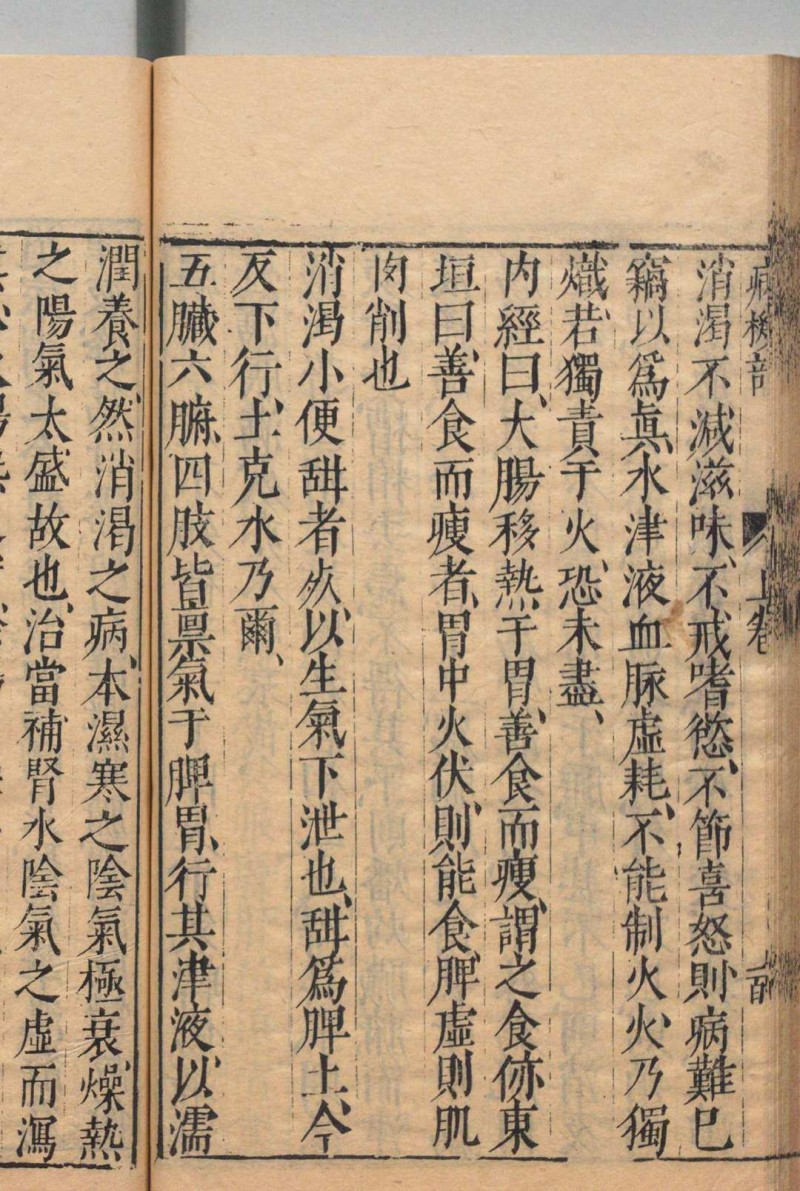 病機部 上卷 一百
消渴不減滋味、不戒嗜慾、不節喜怒則病難已
竊以爲眞水津液血脉虛耗、不能制火、火乃獨
熾、若獨責于火、恐未盡、
內經曰、大腸移熱于胃、善食而瘦、謂之食㑊東
垣曰、善食而瘦者、胃中火伏、則能食、脾虛則肌
肉削也
消渴小便甜者、以生氣下泄也、甜爲脾土、今
反下行、土克水乃爾、
五臟六腑、四肢皆禀氣于脾胃、行其津液、以濡
潤養之、然消渴之病、本濕寒之陰氣極衰、燥熱
之陽氣太盛故也、治當補腎水陰氣之虛而瀉